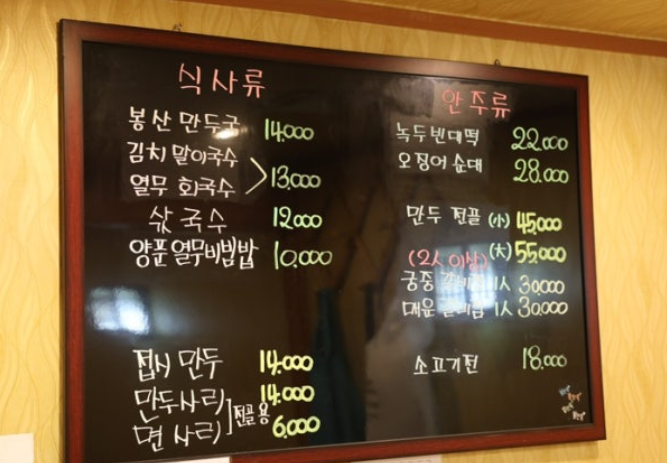 식사류
봉산 만두국 14.000
김치 말이국수
열무 회국수 13.000
삯국수 12.000
양푼열무비빔밥 10.000
접시 만두 14.000
만두사리 14.000
면 사리 6.000
전골용
안주류
녹두빈대떡 22.000
오징어 순대 28.000
만두 전골 (小) 45.000
(大) 55.000
(2人 이상)
궁중 갈비찜 1人 30.000
매운 갈비찜 1人 30.000
소고기전 18.000